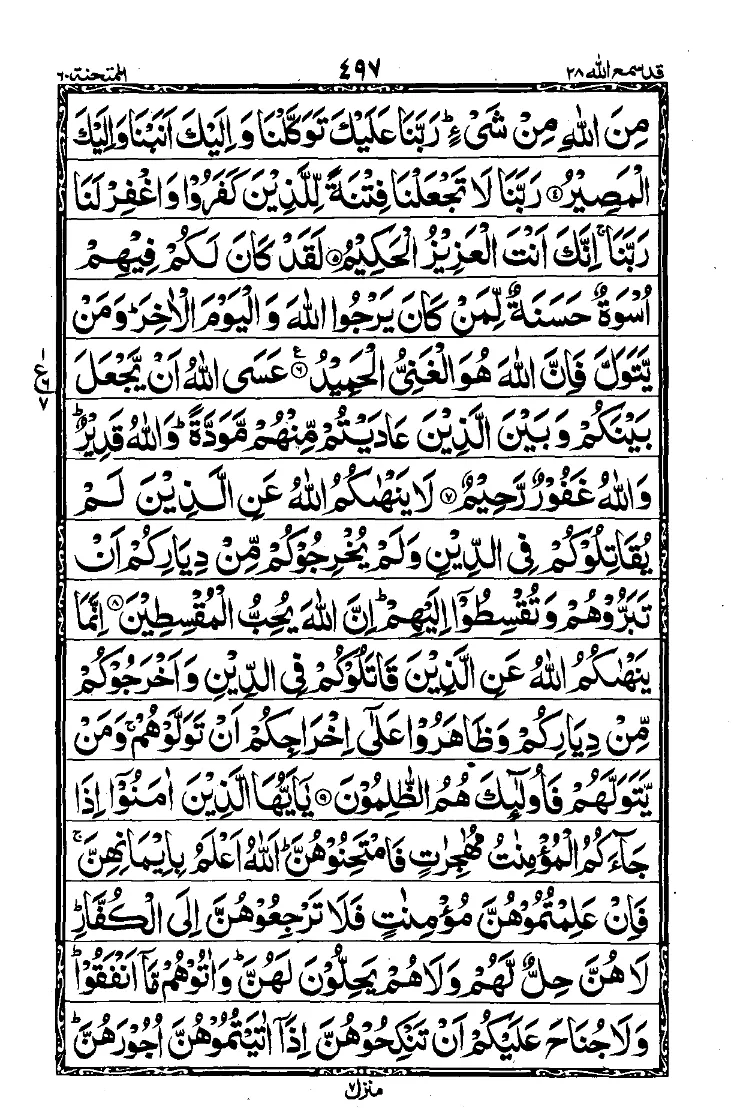 قد سمع الله ٢٨
٤٩٧
الممتحنة ٦٠
مِنَ اللّٰهِ مِنْ شَیْءٍ ؕ رَبَّنَا عَلَیْكَ تَوَكَّلْنَا وَ اِلَیْكَ اَنَبْنَا وَاِلَیْكَ
الْمَصِیْرُ ﴿٤﴾ رَبَّنَا لَا تَجْعَلْنَا فِتْنَةً لِّلَّذِیْنَ كَفَرُوْا وَاغْفِرْ لَنَا
رَبَّنَا ۚ اِنَّكَ اَنْتَ الْعَزِیْزُ الْحَكِیْمُ ﴿٥﴾ لَقَدْ كَانَ لَكُمْ فِیْهِمْ
اُسْوَةٌ حَسَنَةٌ لِّمَنْ كَانَ یَرْجُوا اللّٰهَ وَ الْیَوْمَ الْاٰخِرَ ؕ وَمَنْ
یَّتَوَلَّ فَاِنَّ اللّٰهَ هُوَ الْغَنِیُّ الْحَمِیْدُ ﴿٦﴾ ع عَسَی اللّٰهُ اَنْ یَّجْعَلَ
١
ع ٦
٧
بَیْنَكُمْ وَ بَیْنَ الَّذِیْنَ عَادَیْتُمْ مِّنْهُمْ مَّوَدَّةً ؕ وَاللّٰهُ قَدِیْرٌ ؕ
وَاللّٰهُ غَفُوْرٌ رَّحِیْمٌ ﴿٧﴾ لَا یَنْهٰىكُمُ اللّٰهُ عَنِ الَّذِیْنَ لَمْ
یُقَاتِلُوْكُمْ فِی الدِّیْنِ وَلَمْ یُخْرِجُوْكُمْ مِّنْ دِیَارِكُمْ اَنْ
تَبَرُّوْهُمْ وَتُقْسِطُوْۤا اِلَیْهِمْ ؕ اِنَّ اللّٰهَ یُحِبُّ الْمُقْسِطِیْنَ ﴿٨﴾ اِنَّمَا
یَنْهٰىكُمُ اللّٰهُ عَنِ الَّذِیْنَ قَاتَلُوْكُمْ فِی الدِّیْنِ وَ اَخْرَجُوْكُمْ
مِّنْ دِیَارِكُمْ وَظَاهَرُوْا عَلٰۤی اِخْرَاجِكُمْ اَنْ تَوَلَّوْهُمْ ۚ وَمَنْ
یَّتَوَلَّهُمْ فَاُولٰٓىِٕكَ هُمُ الظّٰلِمُوْنَ ﴿٩﴾ یٰۤاَیُّهَا الَّذِیْنَ اٰمَنُوْۤا اِذَا
جَآءَكُمُ الْمُؤْمِنٰتُ مُهٰجِرٰتٍ فَامْتَحِنُوْهُنَّ ؕ اَللّٰهُ اَعْلَمُ بِاِیْمَانِهِنَّ ۚ
فَاِنْ عَلِمْتُمُوْهُنَّ مُؤْمِنٰتٍ فَلَا تَرْجِعُوْهُنَّ اِلَی الْكُفَّارِ ؕ
لَا هُنَّ حِلٌّ لَّهُمْ وَلَا هُمْ یَحِلُّوْنَ لَهُنَّ ؕ وَاٰتُوْهُمْ مَّاۤ اَنْفَقُوْا ؕ
وَلَا جُنَاحَ عَلَیْكُمْ اَنْ تَنْكِحُوْهُنَّ اِذَاۤ اٰتَیْتُمُوْهُنَّ اُجُوْرَهُنَّ ؕ
منزل ٧